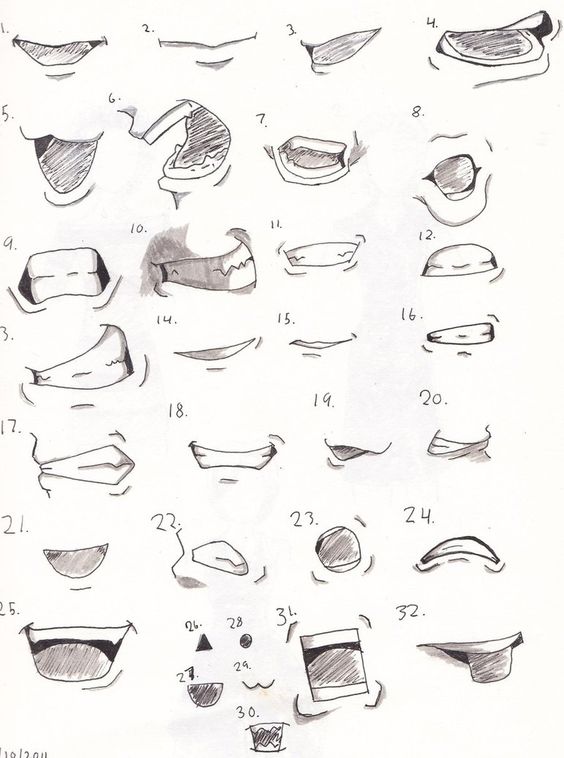 1. 2. 3. 4.
5. 6. 7. 8.
9. 10. 11. 12.
3. 14. 15. 16.
17. 18. 19. 20.
21. 22. 23. 24.
25. 26. 28. 31. 32.
27. 29.
30.
/10/2011